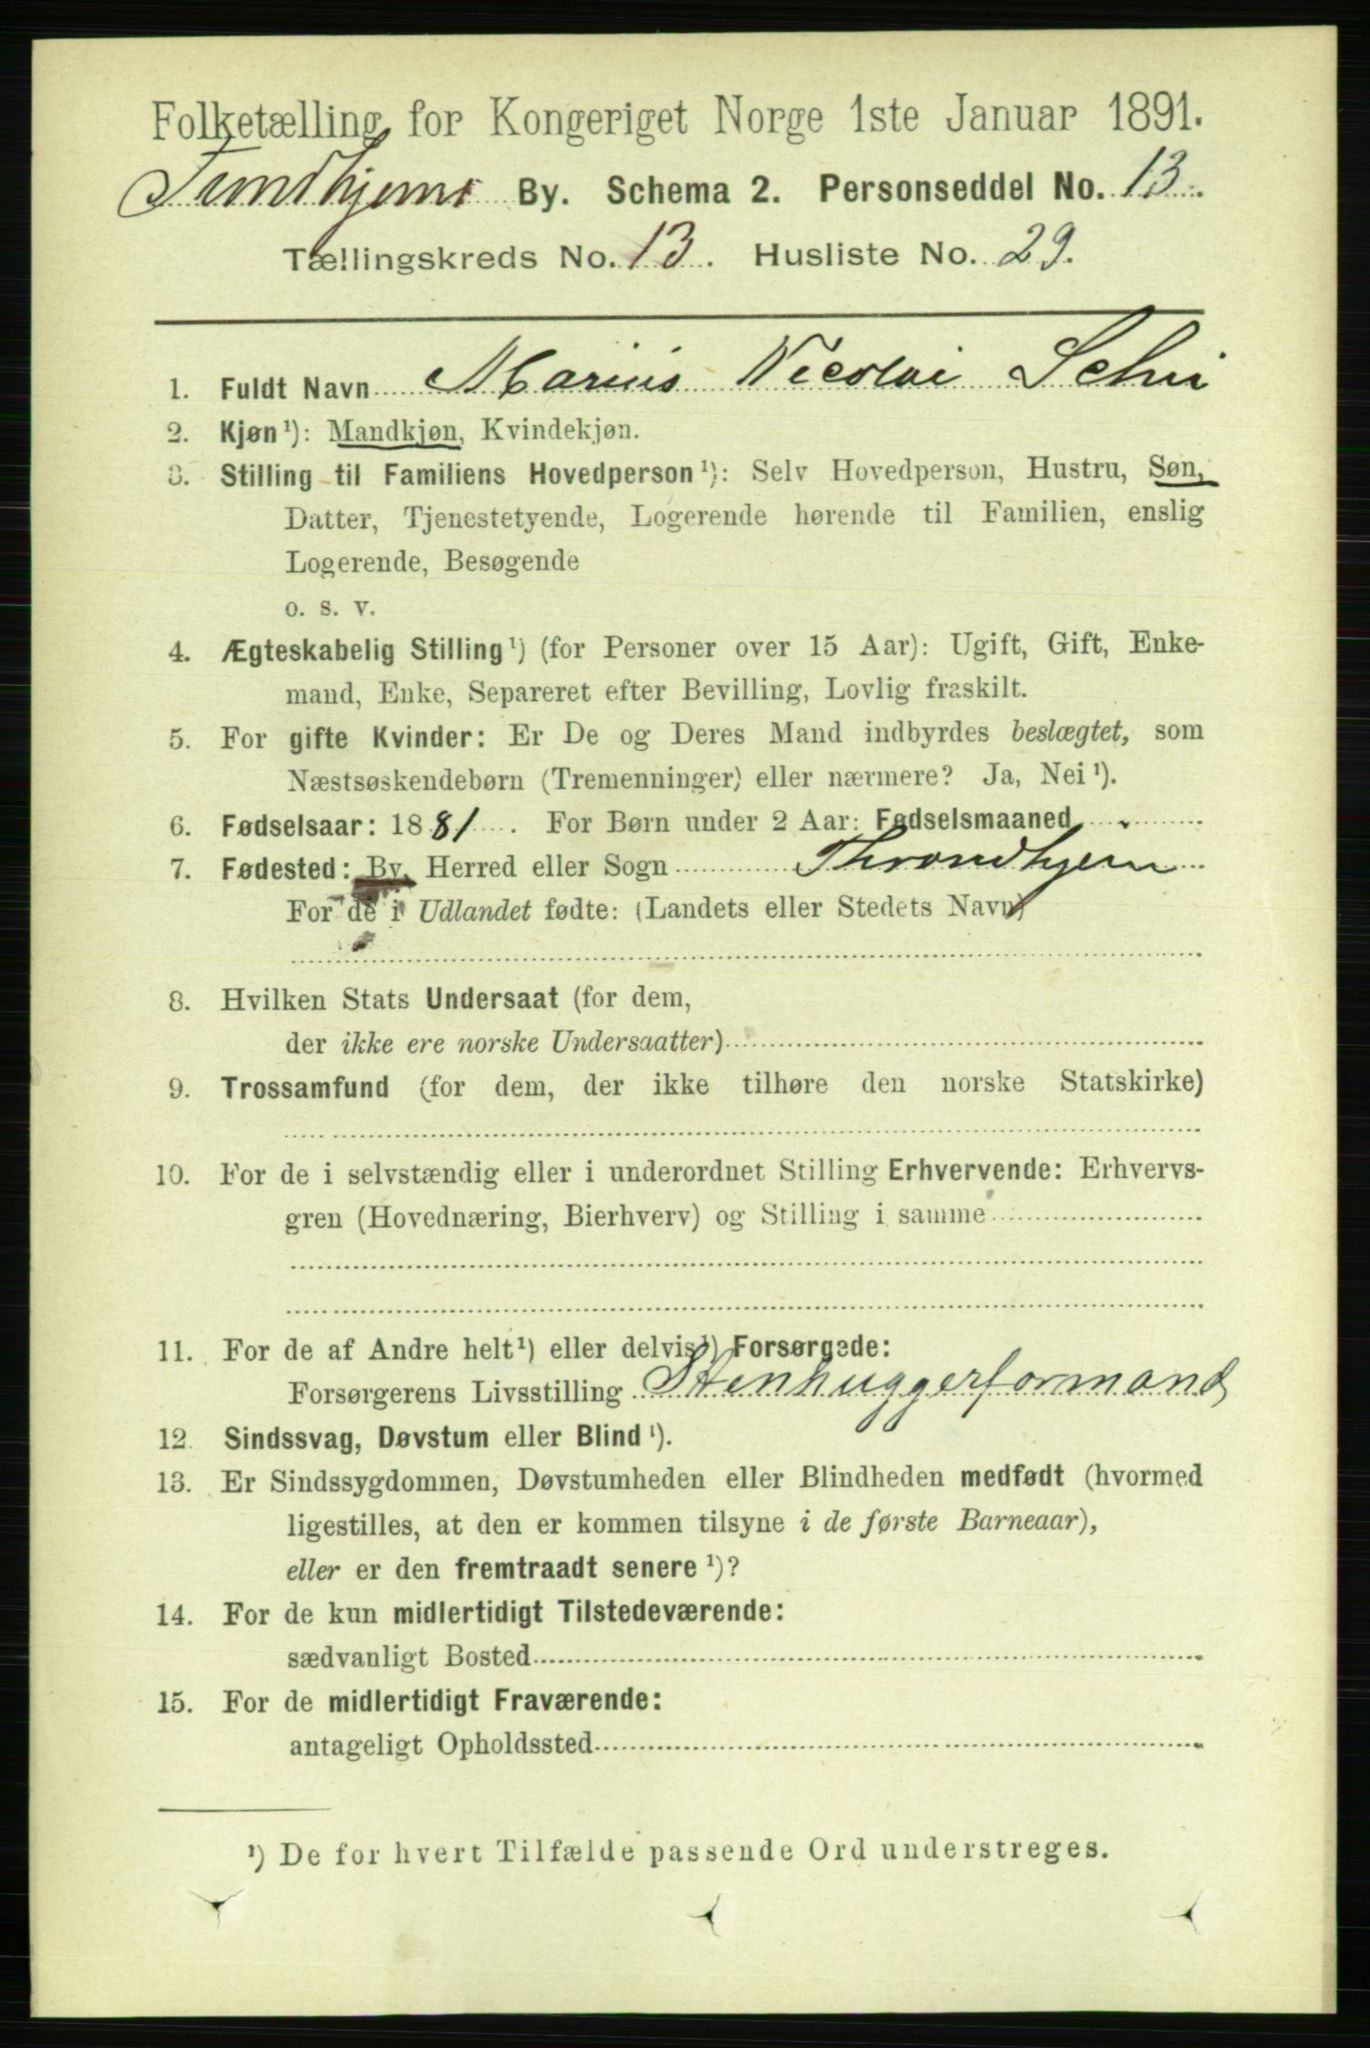 Folketælling for Kongeriget Norge 1ste Januar 1891.
Trondhjems By. Schema 2. Personseddel No. 13.
Tællingskreds No. 13. Husliste No. 29.
1. Fuldt Navn Marius Nicolai Schei
2. Kjøn ¹): Mandkjøn, Kvindekjøn.
3. Stilling til Familiens Hovedperson ¹): Selv Hovedperson, Hustru, Søn,
Datter, Tjenestetyende, Logerende hørende til Familien, enslig
Logerende, Besøgende
o. s. v.
4. Ægteskabelig Stilling ¹) (for Personer over 15 Aar): Ugift, Gift, Enke-
mand, Enke, Separeret efter Bevilling, Lovlig fraskilt.
5. For gifte Kvinder: Er De og Deres Mand indbyrdes beslægtet, som
Næstsøskendebørn (Tremenninger) eller nærmere? Ja, Nei ¹).
6. Fødselsaar: 1881. For Børn under 2 Aar: Fødselsmaaned
7. Fødested: By, Herred eller Sogn Throndhjem
For de i Udlandet fødte: (Landets eller Stedets Navn)
8. Hvilken Stats Undersaat (for dem,
der ikke ere norske Undersaatter)
9. Trossamfund (for dem, der ikke tilhøre den norske Statskirke)
10. For de i selvstændig eller i underordnet Stilling Erhvervende: Erhvervs-
gren (Hovednæring, Bierhverv) og Stilling i samme
11. For de af Andre helt ¹) eller delvis ¹) Forsørgede:
Forsørgerens Livsstilling Stenhuggerformand
12. Sindssvag, Døvstum eller Blind ¹).
13. Er Sindssygdommen, Døvstumheden eller Blindheden medfødt (hvormed
ligestilles, at den er kommen tilsyne i de første Barneaar),
eller er den fremtraadt senere ¹)?
14. For de kun midlertidigt Tilstedeværende:
sædvanligt Bosted
15. For de midlertidigt Fraværende:
antageligt Opholdssted
¹) De for hvert Tilfælde passende Ord understreges.